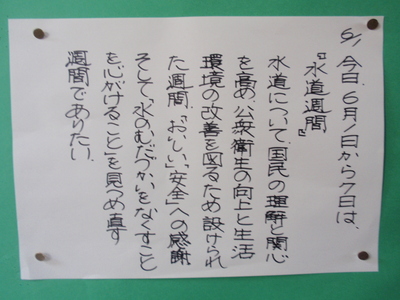 6/1 今日、6月1日から7日は、
『水道週間』
水道について、国民の理解と関心
を高め、公衆衛生の向上と生活
環境の改善を図るため設けられ
た週間。“おいしい”“安全”への感謝
そして、“水のむだづかいをなくすこと
を心がけること”を見つめ直す
週間でありたい。